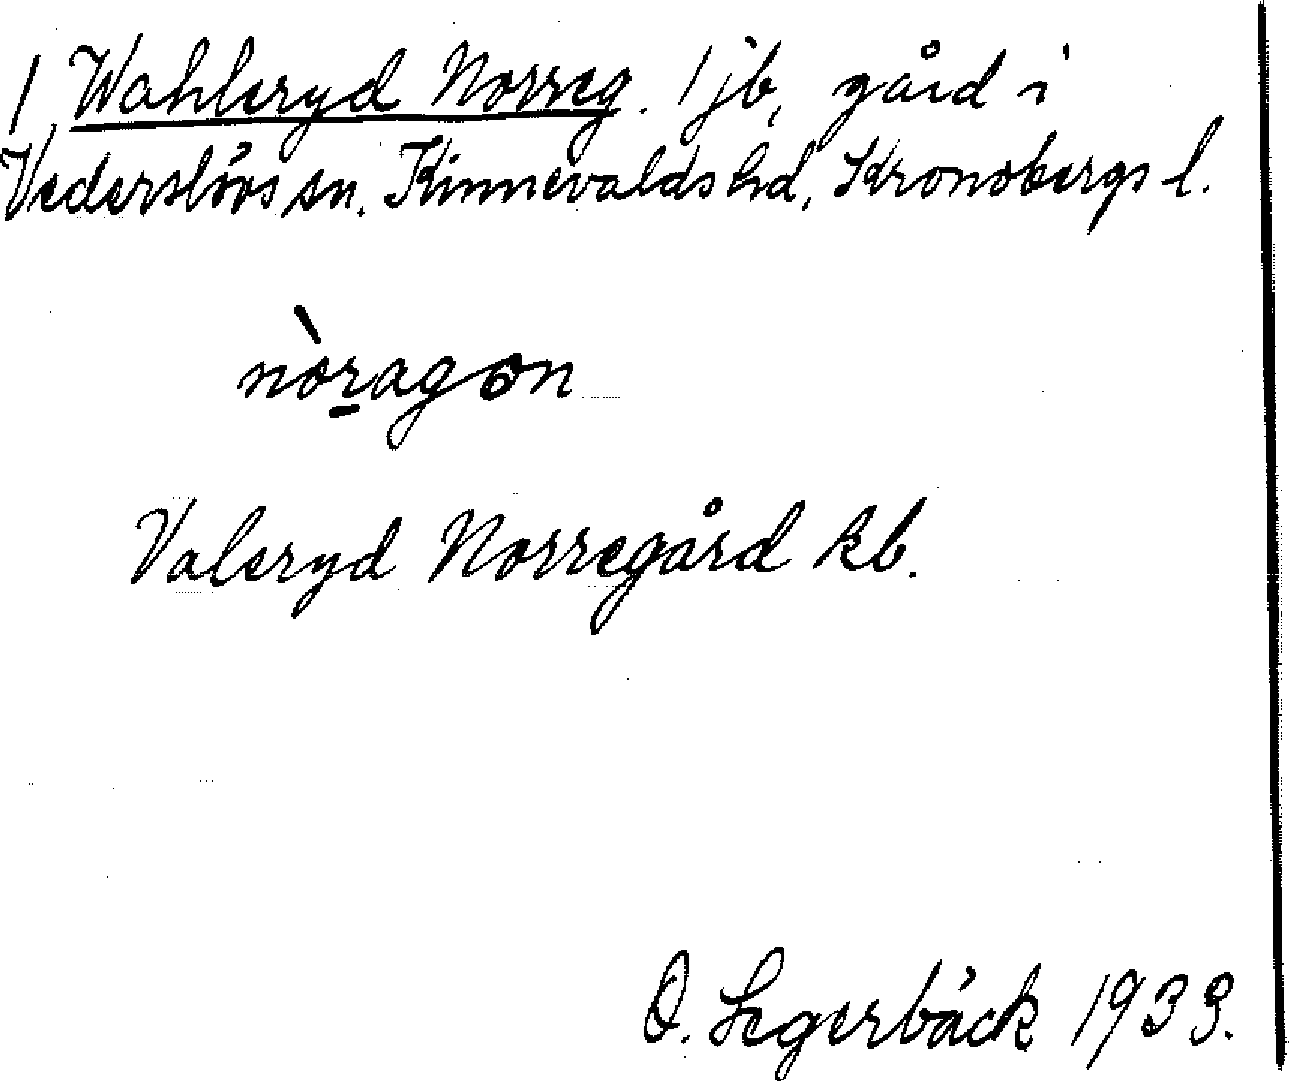 1 Wahleryd Norreg. 1 jb, gård i
Vederslövs sn. Kinnevalds hd, Kronobergs l.
nòragon
Valeryd Norregård kb.
O. Segerbäck 1933.